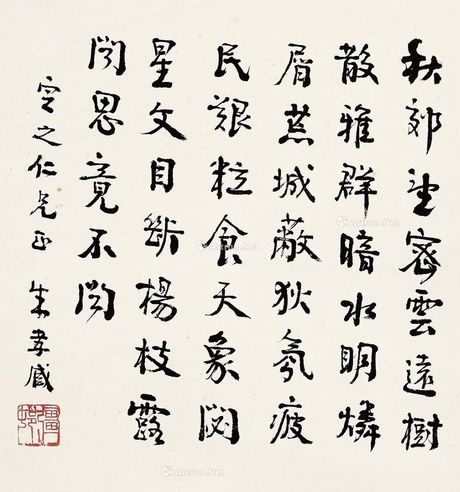 秋郊望密雲遠樹
散雅群暗水明燐
屑蕪城蔽狄氛疲
民艱粒食天象閟
星文目斷楊枝露
聞思竟不聞
空之仁兄正 朱孝臧